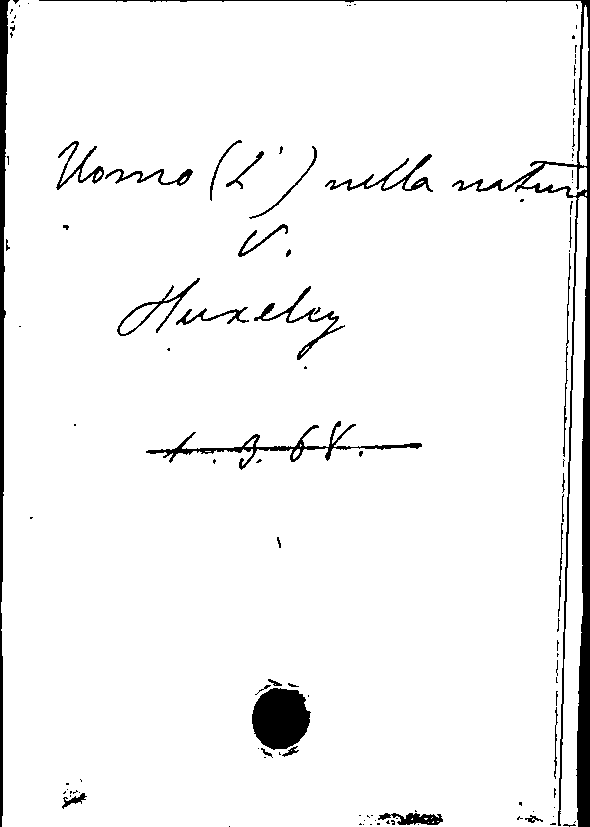 Uomo (L') nella natura
V.
Huxeley
1.3.68.